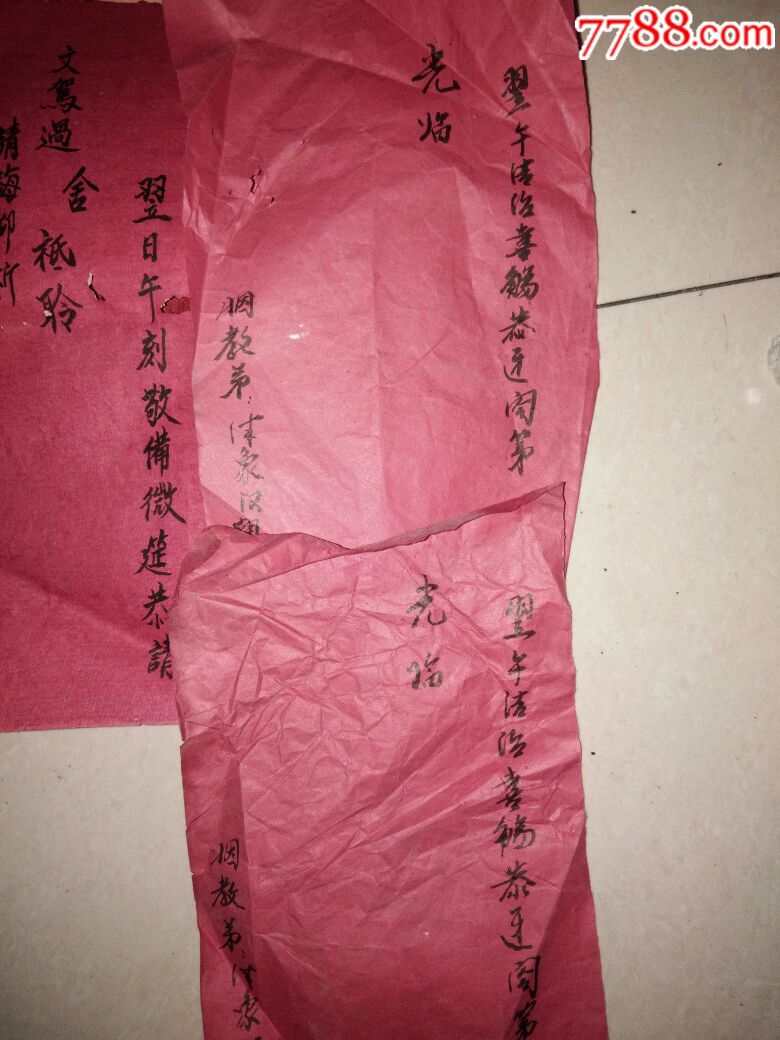 7788.com
翌午洁治喜觴恭迓閤第
光临
姻教弟
翌午洁治喜觴恭迓閤第
光临
姻教弟
翌日午刻敬備微筵恭請
文駕過舍祗聆
請誨即祈